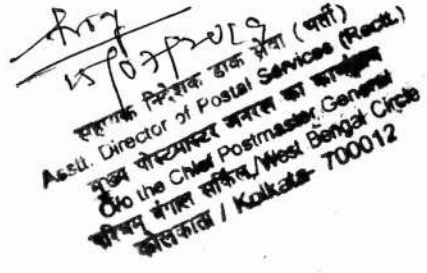 25/07/2019
सहायक निदेशक डाक सेवा (भर्ती)
Asstt. Director of Postal Services (Rectt.)
मुख्य पोस्टमास्टर जनरल का कार्यालय
O/o the Chief Postmaster General
पश्चिम बंगाल सर्किल/West Bengal Circle
कोलकाता / Kolkata- 700012